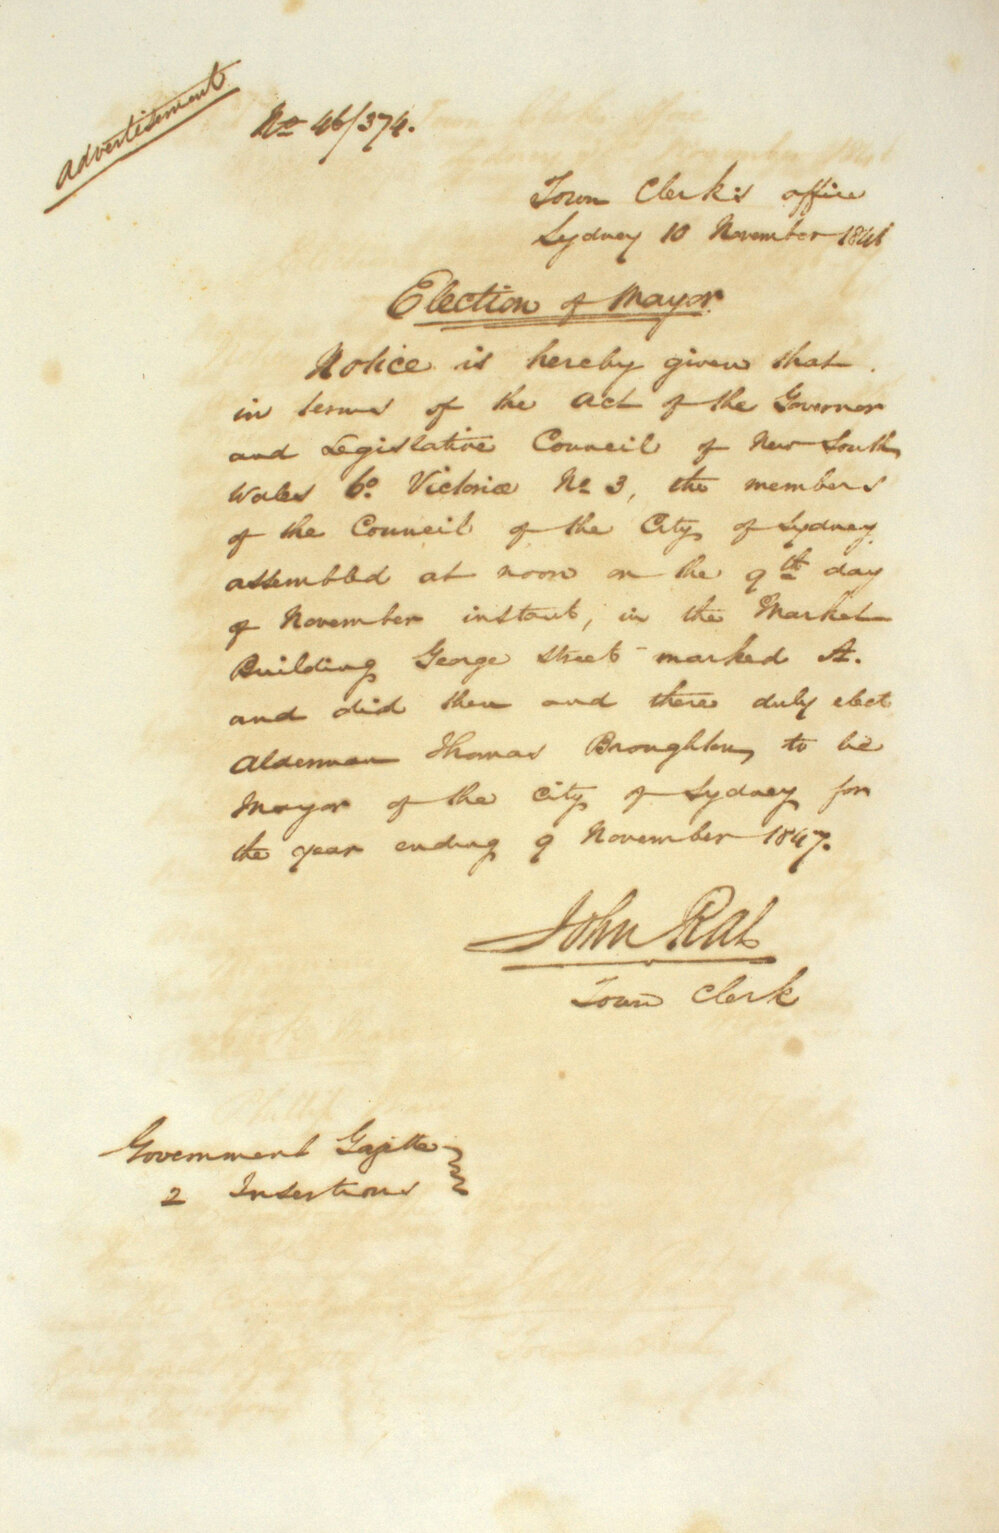 Advertisement
No 46/374.
Town Clerk's office
Sydney 10 November 1846
Election of Mayor
Notice is hereby given that
in terms of the Act of the Governor
and Legislative Council of New South
Wales 6o Victoria No 3, the members
of the Council of the City of Sydney
assembled at noon on the 9th day
of November instant, in the Market
Building George street marked A.
and did then and there duly elect
Alderman Thomas Broughton to be
Mayor of the City of Sydney for
the year ending 9 November 1847.
John Rae
Town Clerk
Government Gazette
2 Insertions